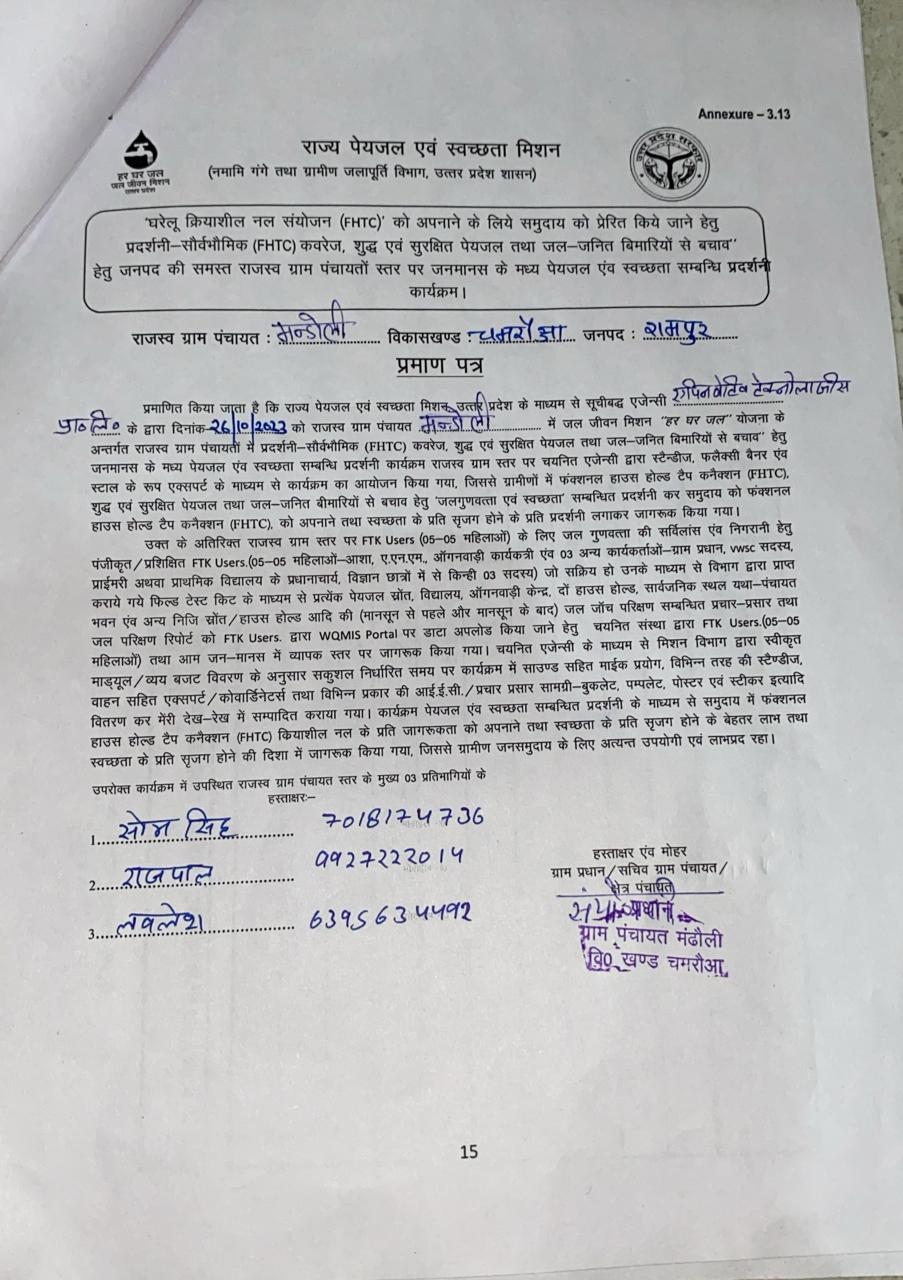 Annexure – 3.13
हर घर जल
जल जीवन मिशन
उत्तर प्रदेश
राज्य पेयजल एवं स्वच्छता मिशन
(नमामि गंगे तथा ग्रामीण जलापूर्ति विभाग, उत्तर प्रदेश शासन)
उत्तर प्रदेश सरकार
'घरेलू क्रियाशील नल संयोजन (FHTC)' को अपनाने के लिये समुदाय को प्रेरित किये जाने हेतु
प्रदर्शनी–सौर्वभौमिक (FHTC) कवरेज, शुद्ध एवं सुरक्षित पेयजल तथा जल–जनित बिमारियों से बचाव"
हेतु जनपद की समस्त राजस्व ग्राम पंचायतों स्तर पर जनमानस के मध्य पेयजल एंव स्वच्छता सम्बन्धि प्रदर्शनी
कार्यक्रम।
राजस्व ग्राम पंचायत : मन्डोली विकासखण्ड : चमरौआ जनपद : रामपुर
प्रमाण पत्र
प्रमाणित किया जाता है कि राज्य पेयजल एवं स्वच्छता मिशन, उत्तर प्रदेश के माध्यम से सूचीबद्ध एजेन्सी एपिनवोटिव टेक्नोलाजीस
प्रा० लि० के द्वारा दिनांक-26/10/2023 को राजस्व ग्राम पंचायत मन्डोली में जल जीवन मिशन "हर घर जल" योजना के
अन्तर्गत राजस्व ग्राम पंचायतों में प्रदर्शनी–सौर्वभौमिक (FHTC) कवरेज, शुद्ध एवं सुरक्षित पेयजल तथा जल–जनित बिमारियों से बचाव" हेतु
जनमानस के मध्य पेयजल एंव स्वच्छता सम्बन्धि प्रदर्शनी कार्यक्रम राजस्व ग्राम स्तर पर चयनित एजेन्सी द्वारा स्टैन्डीज, फलैक्सी बैनर एंव
स्टाल के रूप एक्सपर्ट के माध्यम से कार्यक्रम का आयोजन किया गया, जिससे ग्रामीणों में फंक्शनल हाउस होल्ड टैप कनैक्शन (FHTC),
शुद्ध एवं सुरक्षित पेयजल तथा जल–जनित बीमारियों से बचाव हेतु 'जलगुणवत्ता एवं स्वच्छता' सम्बन्धित प्रदर्शनी कर समुदाय को फंक्शनल
हाउस होल्ड टैप कनैक्शन (FHTC), को अपनाने तथा स्वच्छता के प्रति सृजग होने के प्रति प्रदर्शनी लगाकर जागरूक किया गया।
उक्त के अतिरिक्त राजस्व ग्राम स्तर पर FTK Users (05–05 महिलाओं) के लिए जल गुणवत्ता की सर्विलांस एंव निगरानी हेतु
पंजीकृत/प्रशिक्षित FTK Users.(05–05 महिलाओं–आशा, ए.एन.एम., ऑगनवाड़ी कार्यकत्री एंव 03 अन्य कार्यकर्ताओं–ग्राम प्रधान, vwsc सदस्य,
प्राईमरी अथवा प्राथमिक विद्यालय के प्रधानाचार्य, विज्ञान छात्रों में से किन्ही 03 सदस्य) जो सक्रिय हो उनके माध्यम से विभाग द्वारा प्राप्त
कराये गये फिल्ड टेस्ट किट के माध्यम से प्रत्येंक पेयजल स्रोंत, विद्यालय, ऑगनवाड़ी केन्द्र, दों हाउस होल्ड, सार्वजनिक स्थल यथा–पंचायत
भवन एंव अन्य निजि स्रोंत/हाउस होल्ड आदि की (मानसून से पहले और मानसून के बाद) जल जॉच परिक्षण सम्बन्धित प्रचार–प्रसार तथा
जल परिक्षण रिपोर्ट को FTK Users. द्वारा WQMIS Portal पर डाटा अपलोड किया जाने हेतु चयनित संस्था द्वारा FTK Users.(05–05
महिलाओं) तथा आम जन–मानस में व्यापक स्तर पर जागरूक किया गया। चयनित एजेन्सी के माध्यम से मिशन विभाग द्वारा स्वीकृत
माड्यूल/व्यय बजट विवरण के अनुसार सकुशल निर्धारित समय पर कार्यक्रम में साउण्ड सहित माईक प्रयोग, विभिन्न तरह की स्टैण्डीज,
वाहन सहित एक्सपर्ट/कोवार्डिनेटर्स तथा विभिन्न प्रकार की आई.ई.सी./प्रचार प्रसार सामग्री–बुकलेट, पम्पलेट, पोस्टर एवं स्टीकर इत्यादि
वितरण कर मेंरी देख–रेख में सम्पादित कराया गया। कार्यक्रम पेयजल एंव स्वच्छता सम्बन्धित प्रदर्शनी के माध्यम से समुदाय में फंक्शनल
हाउस होल्ड टैप कनैक्शन (FHTC) कियाशील नल के प्रति जागरूकता को अपनाने तथा स्वच्छता के प्रति सृजग होने के बेहतर लाभ तथा
स्वच्छता के प्रति सृजग होने की दिशा में जागरूक किया गया, जिससे ग्रामीण जनसमुदाय के लिए अत्यन्त उपयोगी एवं लाभप्रद रहा।
उपरोक्त कार्यक्रम में उपस्थित राजस्व ग्राम पंचायत स्तर के मुख्य 03 प्रतिभागियों के
हस्ताक्षरः–
1. सोम सिंह 7018174736
2. राजपाल 9927222014
3. लवलेश 6395634492
हस्ताक्षर एंव मोहर
ग्राम प्रधान/सचिव ग्राम पंचायत/
क्षेत्र पंचायत
प्रधान
ग्राम पंचायत मंढौली
वि० खण्ड चमरौआ
15